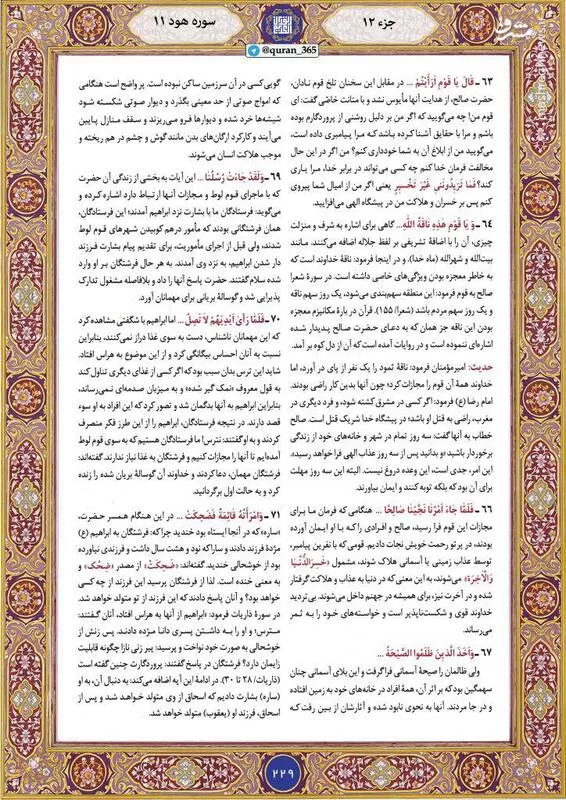 جزء ۱۲
سوره هود ۱۱
مشرق
@quran_365
۶۳ - قَالَ يَا قَوْمِ أَرَأَيْتُمْ ... در مقابل این سخنان تلخ قوم نادان،
حضرت صالح، از هدایت آنها مأیوس نشد و با متانت خاصّی گفت: ای
قوم من! چه می‌گویید که اگر من بر دلیل روشنی از پروردگارم بوده
باشم و مرا با حقایق آشنا کرده باشد که مرا پیامبری داده است،
می‌گویید من از ابلاغ آن به شما خودداری کنم؟ من اگر در این حال
مخالفت فرمان خدا کنم چه کسی می‌تواند در برابر خدا، مرا یاری
کند؟ فَمَا تَزِيدُونَنِي غَيْرَ تَخْسِيرٍ یعنی اگر من از امیال شما پیروی
کنم پس بر خسران و هلاکت من در پیشگاه الهی می‌افزایید.
۶۴ - وَ يَا قَوْمِ هَذِهِ نَاقَةُ اللَّهِ... گاهی برای اشاره به شرف و منزلت
چیزی، آن را با اضافهٔ تشریفی بر لفظ جلاله اضافه می‌کنند. مانند
بیت‌الله و شهرالله (ماه خدا). و در اینجا فرمود: ناقهٔ خداوند است که
به خاطر معجزه بودن ویژگی‌های خاصی داشته است. در سورهٔ شعرا
صالح به قوم فرمود: این منطقه سهم‌بندی می‌شود، یک روز سهم ناقه
و یک روز سهم مردم باشد (شعرا/ ۱۵۵). قرآن در بارهٔ مکانیزم معجزه
بودن این ناقه جز همان که به دعای حضرت صالح پدیدار شده
اشاره‌ای ننموده است و در روایات آمده است که آن از دل کوه بر آمد.
حدیث: امیرمؤمنان فرمود: ناقهٔ ثمود را یک نفر از پای در آورد، اما
خداوند همهٔ آن قوم را مجازات کرد؛ چون آنها بدین کار راضی بودند.
امام رضا (ع) فرمود: اگر کسی در مشرق کشته شود، و فرد دیگری در
مغرب، راضی به قتل او باشد؛ در پیشگاه خدا شریک قتل است. صالح
خطاب به آنها گفت: سه روز تمام در شهر و خانه‌های خود از زندگی
برخوردار باشید، و بدانید پس از سه روز عذاب الهی فرا خواهد رسید،
این امر، جدی است، این وعده دروغ نیست. البته این سه روز مهلت
برای آن بود که بلکه توبه کنند و ایمان بیاورند.
۶۶ - فَلَمَّا جَاءَ أَمْرُنَا نَجَّيْنَا صَالِحًا ... هنگامی که فرمان ما برای
مجازات این قوم فرا رسید، صالح و افرادی را که با او ایمان آورده
بودند، در پرتو رحمت خویش نجات دادیم. قومی که با نفرین پیامبر،
توسط عذاب زمینی یا آسمانی هلاک شوند، مشمول «خَسِرَ الدُّنْيَا
وَ الْآخِرَة» می‌شوند، به این معنی که در دنیا به عذاب و هلاکت گرفتار
شده و در آخرت نیز، برای همیشه در جهنم داخل می‌شوند. بی‌تردید
خداوند قوی و شکست‌ناپذیر است و خواسته‌های خود را به ثمر
می‌رساند.
۶۷ - وَأَخَذَ الَّذِينَ ظَلَمُوا الصَّيْحَةُ ...
ولی ظالمان را صیحهٔ آسمانی فرا گرفت و این بلای آسمانی چنان
سهمگین بود که بر اثر آن، همهٔ افراد در خانه‌های خود به زمین افتاده
و در جا مردند. آنها به نحوی نابود شده و آثارشان از بین رفت که
گویی کسی در آن سرزمین ساکن نبوده است. پر واضح است هنگامی
که امواج صوتی از حد معینی بگذرد و دیوار صوتی شکسته شود
شیشه‌ها خرد شده و دیوارها فرو می‌ریزند و سقف منازل پایین
می‌آیند و کارکرد ارگان‌های بدن مانند گوش و چشم در هم ریخته و
موجب هلاکت انسان می‌شوند.
۶۹ - وَلَقَدْ جَاءَتْ رُسُلُنَا ... این آیات به بخشی از زندگی آن حضرت
که با ماجرای قوم لوط و مجازات آنها ارتباط دارد اشاره کرده و
می‌گوید: فرستادگان ما با بشارت نزد ابراهیم آمدند؛ این فرستادگان،
همان فرشتگانی بودند که مأمور درهم کوبیدن شهرهای قوم لوط
شدند، ولی قبل از اجرای مأموریت، برای تقدیم پیام بشارت فرزند
دار شدن ابراهیم، به نزد وی آمدند. به هر حال فرشتگان بر او وارد
شده سلام گفتند. حضرت پاسخ آنها را داد و بلافاصله مشغول تدارک
پذیرایی شد و گوسالهٔ بریانی برای مهمانان آورد.
۷۰ - فَلَمَّا رَأَى أَيْدِيَهُمْ لَا تَصِلُ ... اما ابراهیم با شگفتی مشاهده کرد
که این مهمانان ناشناس، دست به سوی غذا دراز نمی‌کنند، بنابراین
نسبت به آنان احساس بیگانگی کرد و از این موضوع به هراس افتاد.
شاید این ترس بدان سبب بود که اگر کسی از غذای دیگری تناول کند
به قول معروف «نمک گیر شده» و به میزبان صدمه‌ای نمی‌رساند،
بنابراین ابراهیم به آنها بدگمان شد و تصور کرد که این افراد به او سوء
قصد دارند. در نتیجه فرستادگان، ابراهیم را از این طرز فکر منصرف
کردند و به او گفتند: نترس! ما فرستادگان هستیم که به سوی قوم لوط
آمده‌ایم تا آنها را مجازات کنیم و فرشتگان به غذا نیاز ندارند. گفته‌اند:
فرشتگان مهمان، دعا کردند و خداوند آن گوسالهٔ بریان شده را زنده
کرد و به حالت اول برگردانید.
۷۱ - وَامْرَأَتُهُ قَائِمَةٌ فَضَحِكَتْ ... در این هنگام همسر حضرت،
«ساره» که در آنجا ایستاده بود خندید چرا که: فرشتگان به ابراهیم (ع)
مژدهٔ فرزند دادند و ساره که نود و هشت سال داشت و فرزندی نیاورده
بود از خوشحالی خندید. گفته‌اند: «ضَحِكَتْ» از مصدر «ضِحْك» و
به معنی خنده است. لذا از فرشتگان پرسید این فرزند از چه کسی
خواهد بود؟ و آنان پاسخ دادند که این فرزند از تو متولد خواهد شد.
در سورهٔ ذاریات فرمود: «ابراهیم از آنها به هراس افتاد، آنان گفتند:
مترس! و او را به داشتن پسری دانا مژده دادند. پس زنش از
خوشحالی به صورت خود نواخت و پرسید: پیر زنی نازا چگونه قابلیت
زایمان دارد؟ فرشتگان در پاسخ گفتند: پروردگارت چنین گفته است
(ذاریات/ ۲۸ تا ۳۰). در ادامهٔ این آیه اضافه می‌کند: به دنبال آن، به او
(ساره) بشارت دادیم که اسحاق از وی متولد خواهد شد و پس از
اسحاق، فرزند او (یعقوب) متولد خواهد شد.
۲۲۹